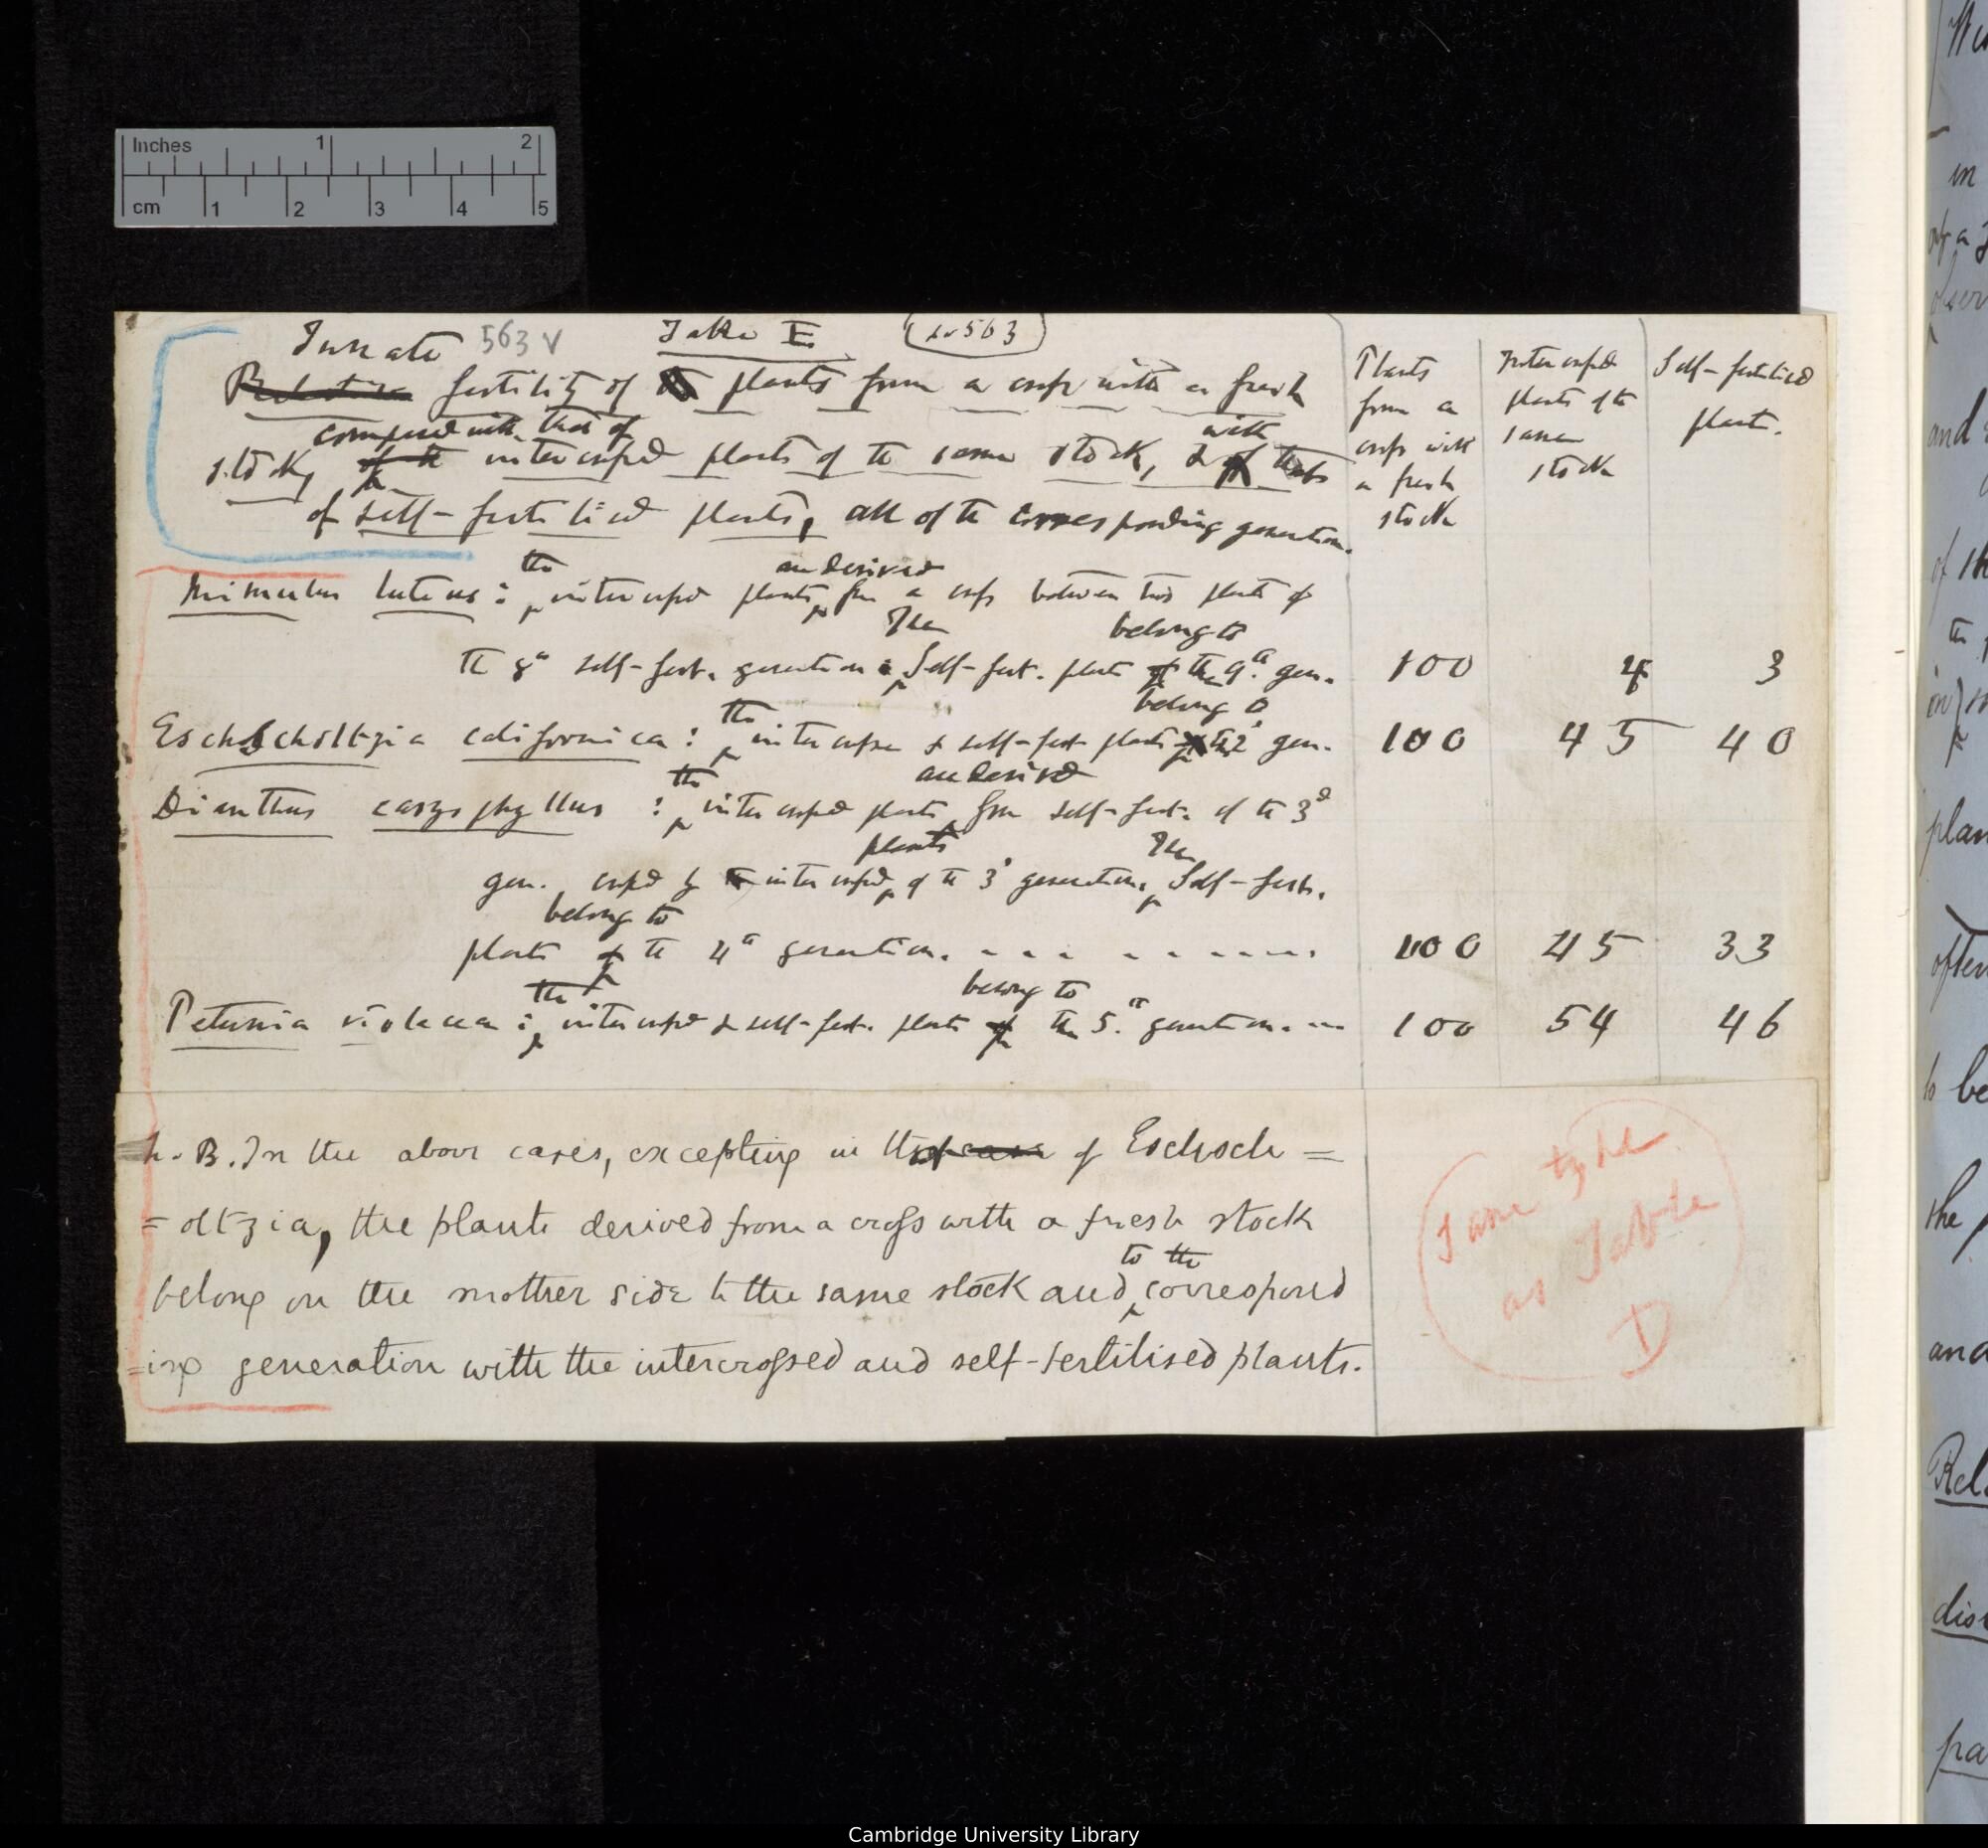 Inches 1 2
cm 1 2 3 4 5
563 v Table E. (to 563)
Innate
Relative fertility of plants from a cross with a fresh
compared with that of with
stock, of the intercrossed plants of the same stock, & of that
of self-fertilised plants, all of the corresponding generation.
Plants from a cross with a fresh stock
Intercrossed plants of the same stock
Self-fertilised plants.
the are derived
Mimulus luteus: intercrossed plants from a cross between two plants of
The belong to
the 8th self-fert. generation: Self-fert. plants of the 9th. gen. 100 4 3
the belong to
Eschscholtzia californica: intercrossed & self-fert plants of the 2d gen. 100 45 40
the are derived
Dianthus caryophyllus: intercrossed plants from self-fert. of the 3d
plants The
gen. crossed by the intercrossed of the 3d generation. Self-fert.
belong to
plants of the 4th generation. - - - - - - - - - 100 45 33
the belong to
Petunia violacea: intercrossed & self-fert. plants of the 5.th generation. --- 100 54 46
N.B. In the above cases, excepting in the case of Eschsch=
=oltzia, the plants derived from a cross with a fresh stock
to the
belong on the mother side to the same stock and correspond
=ing generation with the intercrossed and self-fertilised plants.
Same type
as Table
D
Cambridge University Library